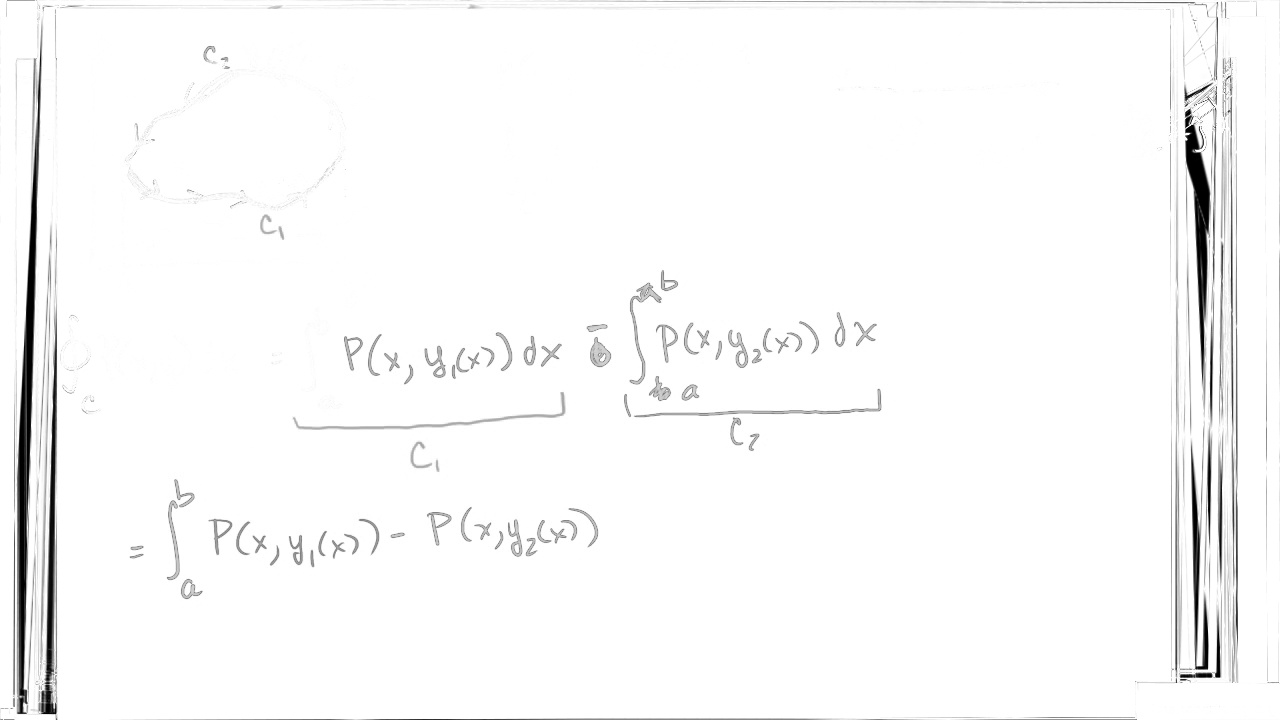 C₂
C₁
= P(x, y₁(x)) dx - ∫ₐᵇ P(x, y₂(x)) dx
c
C₁
C₂
= ∫ₐᵇ P(x, y₁(x)) - P(x, y₂(x))